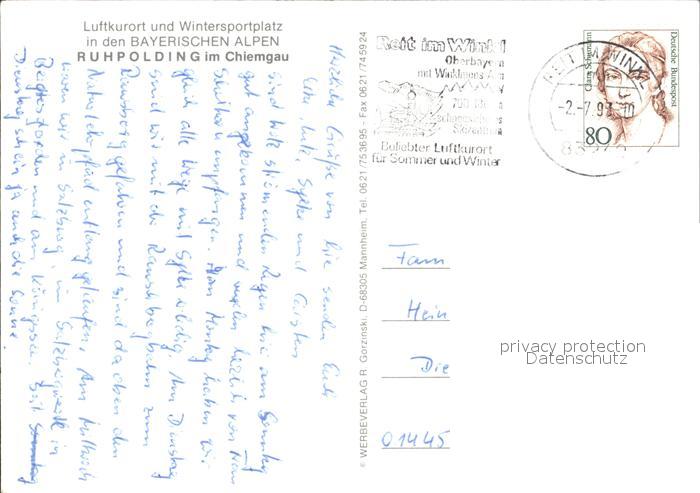 Luftkurort und Wintersportplatz
in den BAYERISCHEN ALPEN
RUHPOLDING im Chiemgau
Herzliche Grüße von hier senden Euch
Silke und Carsten
sind trotz strömenden Regen hier am Sonntag
gut angekommen und wurden herzlich von
empfangen. Am Montag haben wir
gleich alle Wege mit erledigt. Am Dienstag
sind wir mit der Rauschbergbahn zum
Rauschberg gefahren und sind da oben den
Naturlehrpfad entlang gelaufen. Am Mittwoch
waren wir in Salzburg, im Salzbergwerk in
Berchtesgaden und am Königssee. Seit
Dienstag schein ja auch die Sonne.
© WERBEVERLAG R. Gorzinski, D-68305 Mannheim, Tel. 0621/753695 - Fax 0621/745924
Reit im Winkl
Oberbayern
mit Winklmoos-Alm
700
schneesicheres
Skizentrum
Beliebter Luftkurort
für Sommer und Winter
REIT IM WINKL
-2.-7.97
Clara Schumann
Deutsche Bundespost
80
Fam
Hein
Die
01445
privacy protection
Datenschutz